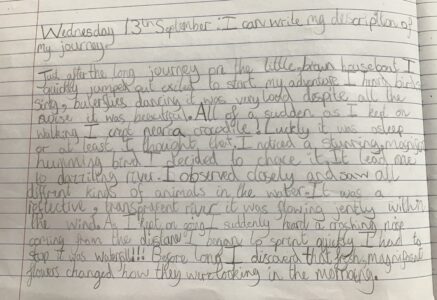 Wednesday 13th September: I can write my discription of
my journey.
Just after the long journey on the little brown houseboat I
quickly jumped out excited to start my adventure. I heard birds
sing, buterflies dancing it was very loud despite all the
noise it was beautiful. All of a sudden as I kept on
walking I crept near a crocodile! Luckly it was asleep
or at least I thought that. I noticed a stunning, magnificent
humming bird I decided to chace it. It lead me
to dazzling river. I observed closely and saw all
different kinds of animals in the water. It was a
reflective, transparent river it was flowing jently within
the wind. As I kept on going I suddenly heard a crashing noise
coming from the distance I began to sprint quickly I had to
stop it was waterfall!!! Before long I discoverd that fresh, magnificent
flowers changed how they were looking in the morning.